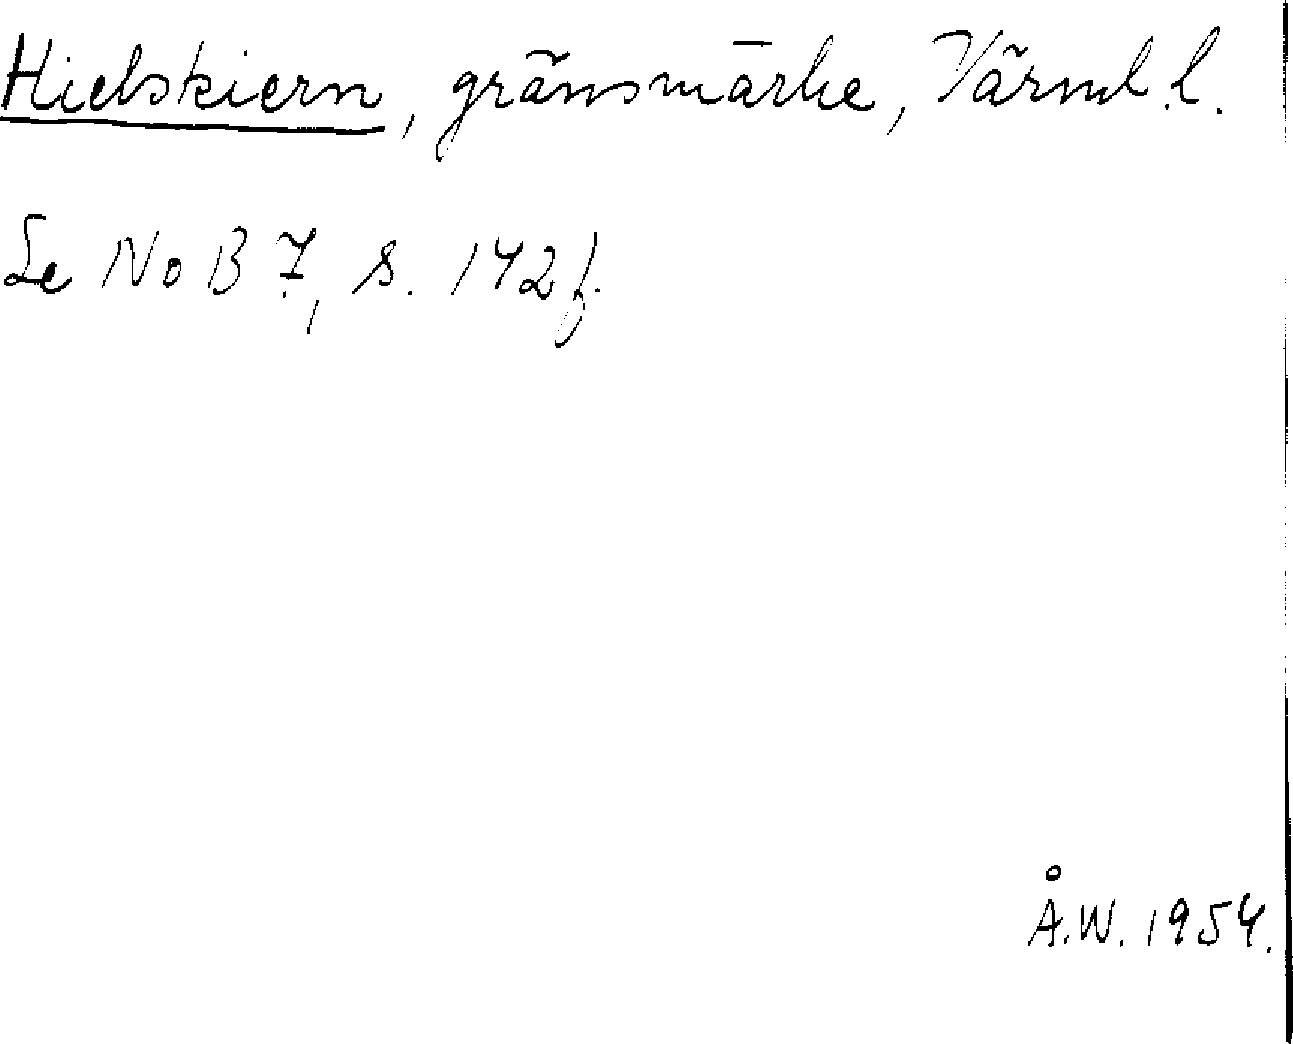 Hielskiern, gränsmärke, Värml. l.
Se NoB 7, s. 142 f.
Å.W. 1954.